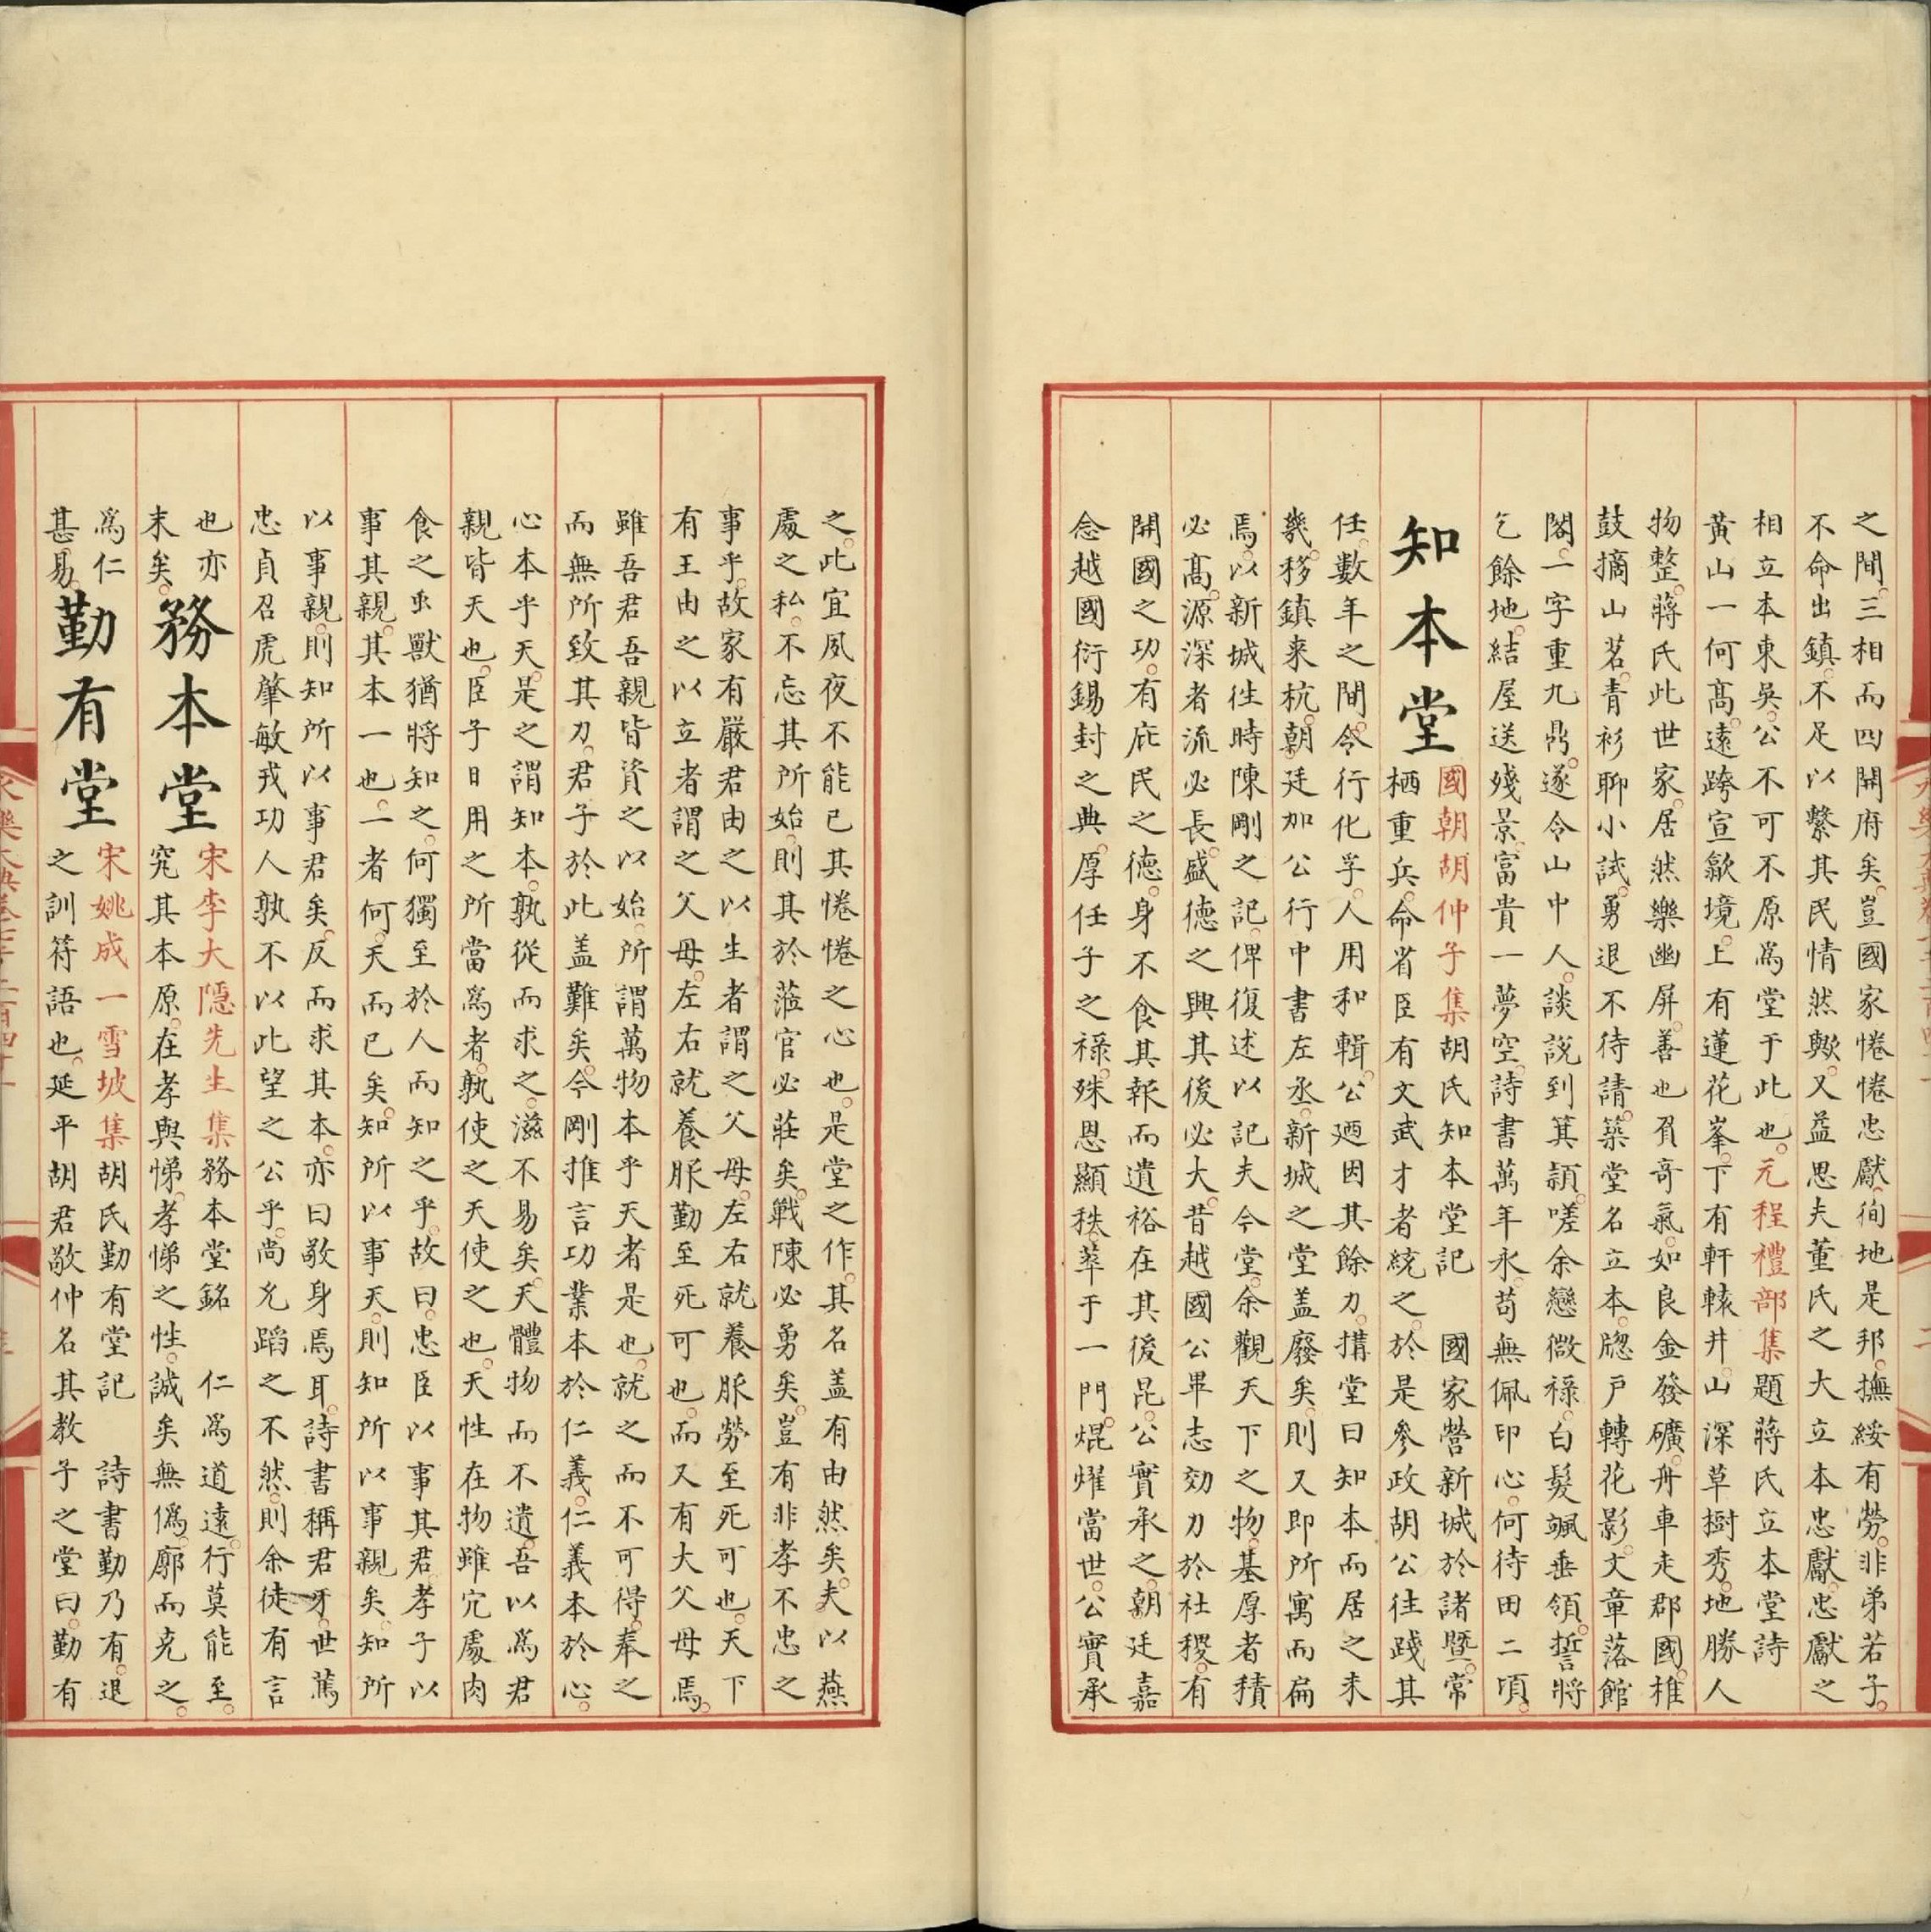 之間三相而四開府矣豈國家惓惓忠獻徇地是邦撫綏有勞非弟若子
不命出鎮不足以繫其民情然歟又益思夫董氏之大立本忠獻忠獻之
相立本東吳公不可不原爲堂于此也元程禮部集題蔣氏立本堂詩
黃山一何髙遠跨宣歙境上有蓮花峯下有軒轅井山深草樹秀地勝人
物整蔣氏此世家居然樂幽屏善也負奇氣如良金發礦舟車走郡國榷
鼓摘山茗青衫聊小試勇退不待請築堂名立本牕戶轉花影文章落館
閣一字重九鼎遂令山中人談說到箕潁嗟余戀微祿白髮颯垂領誓將
乞餘地結屋送殘景富貴一夢空詩書萬年永苟無佩印心何待田二頃
知本堂
國朝胡仲子集胡氏知本堂記 國家營新城於諸暨常
栖重兵命省臣有文武才者統之於是參政胡公往踐其
任數年之間令行化孚人用和輯公廼因其餘力搆堂曰知本而居之未
幾移鎮来杭朝廷加公行中書左丞新城之堂盖廢矣則又即所寓而扁
焉以新城徃時陳剛之記俾復述以記夫今堂余觀天下之物基厚者積
必髙源深者流必長盛德之興其後必大昔越國公畢志効力於社稷有
開國之功有庇民之德身不食其報而遺裕在其後昆公實承之朝廷嘉
念越國衍錫封之典厚任子之祿殊恩顯秩萃于一門焜燿當世公實承
之此宜夙夜不能已其惓惓之心也是堂之作其名盖有由然矣夫以燕
處之私不忘其所始則其於蒞官必莊矣戰陳必勇矣豈有非孝不忠之
事乎故家有嚴君由之以生者謂之父母左右就養服勞至死可也天下
有王由之以立者謂之父母左右就養服勤至死可也而又有大父母焉
雖吾君吾親皆資之以始所謂萬物本乎天者是也就之而不可得奉之
而無所致其力君子於此盖難矣今剛推言功業本於仁義仁義本於心
心本乎天是之謂知本孰從而求之滋不易矣天體物而不遺吾以爲君
親皆天也臣子日用之所當爲者孰使之天使之也天性在物雖宂處肉
食之虫獸猶將知之何獨至於人而知之乎故曰忠臣以事其君孝子以
事其親其本一也二者何天而已矣知所以事天則知所以事親矣知所
以事親則知所以事君矣反而求其本亦曰敬身焉耳詩書稱君牙世篤
忠貞召虎肇敏戎功人孰不以此望之公乎尚允蹈之不然則余徒有言
也亦
末矣
務本堂
宋李大隱先生集務本堂銘 仁爲道遠行莫能至
究其本原在孝與悌孝悌之性誠矣無僞廓而充之
爲仁
甚易
勤有堂
宋姚成一雪坡集胡氏勤有堂記 詩書勤乃有退
之訓符語也延平胡君敬仲名其教子之堂曰勤有